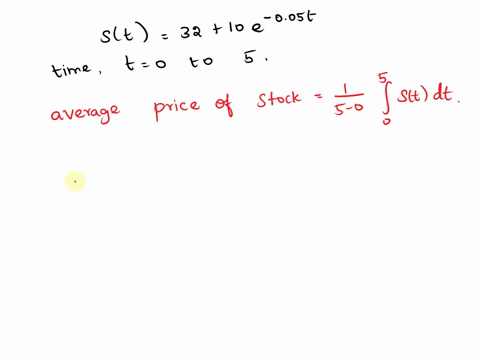 s(t) = 32 + 10 e^{-0.05t}
time, t=0 to 5.
average price of stock = \frac{1}{5-0} \int_{0}^{5} s(t) dt.